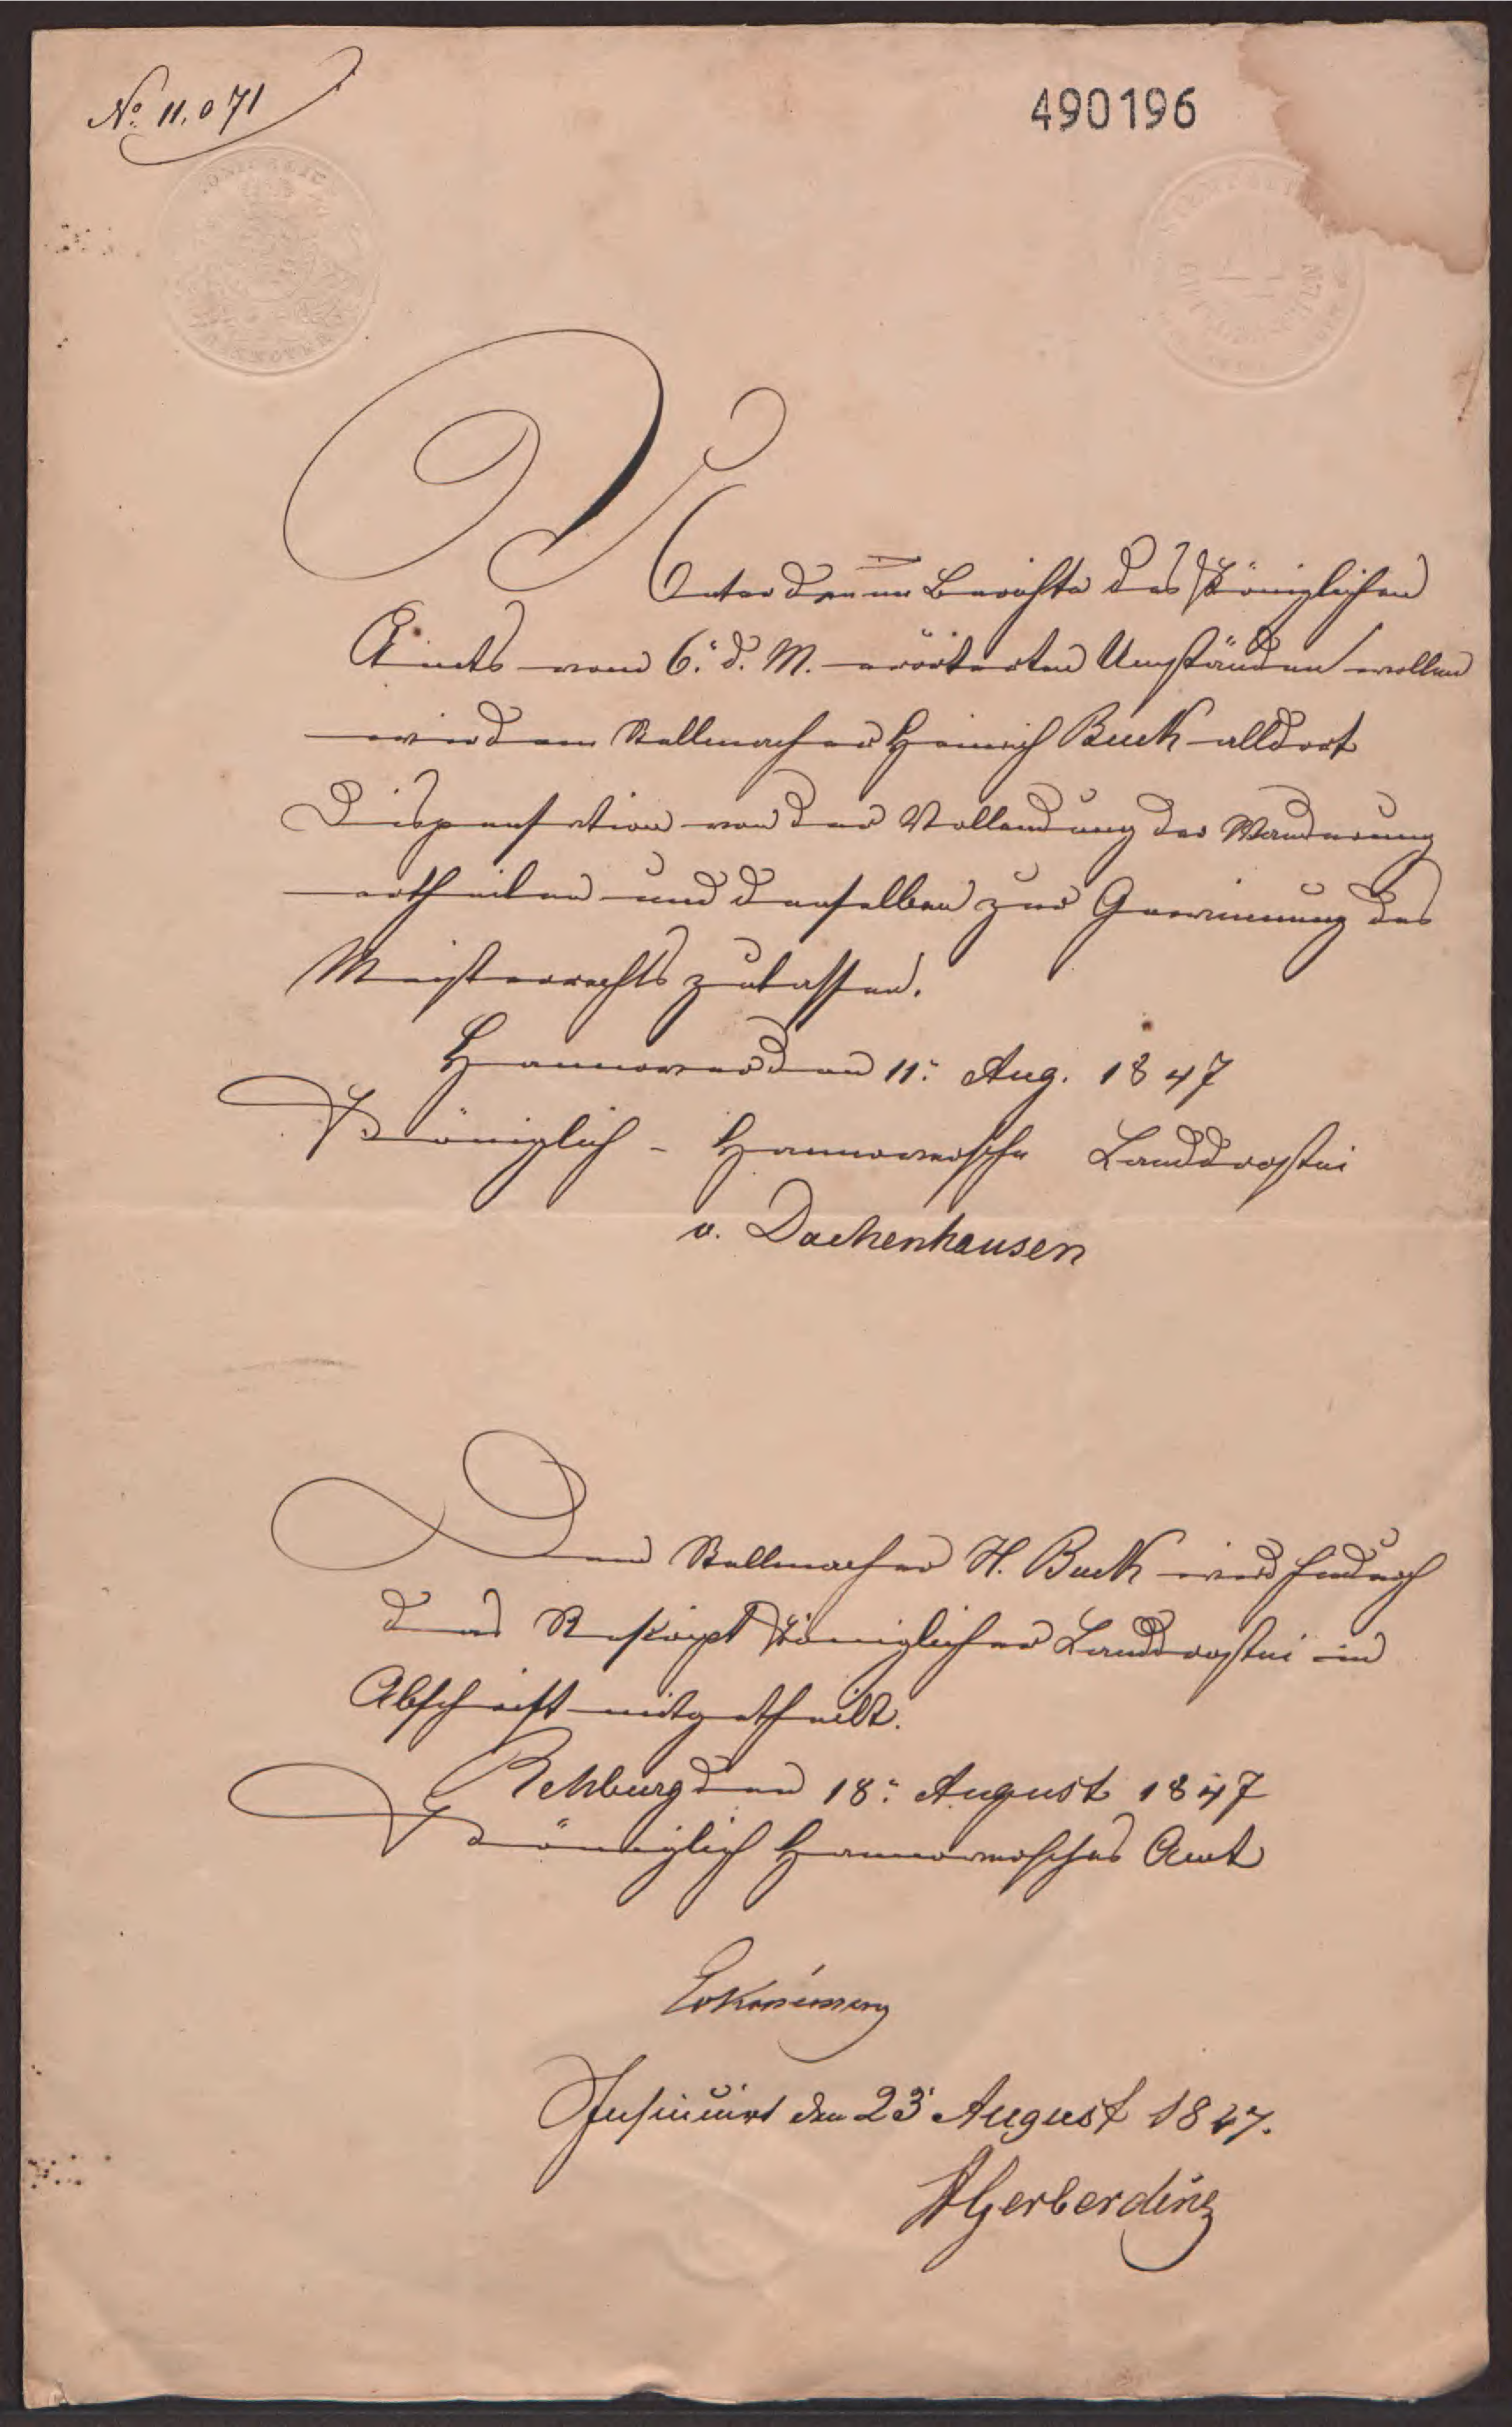 No. 11.071
490196
Unter den im Berichte des Königlichen
Amts vom 6. d. M. erörterten Umständen wollen
wir dem Stellmacher Heinrich Buck alldort
Dispensation von der Vollendung der Wanderung
ertheilen und denselben zur Gewinnung des
Meisterrechts zulassen.
Hannover den 11. Aug. 1847
Königlich - Hannoversche Landdrostei
v. Dachenhausen
Dem Stellmacher H. Buck wird hiedurch
das Rescript Königlicher Landdrostei in
Abschrift mitgetheilt.
Rehburg den 18. August 1847
Königlich Hannoversches Amt
Insinuirt den 23 August 1847.
HGerberding